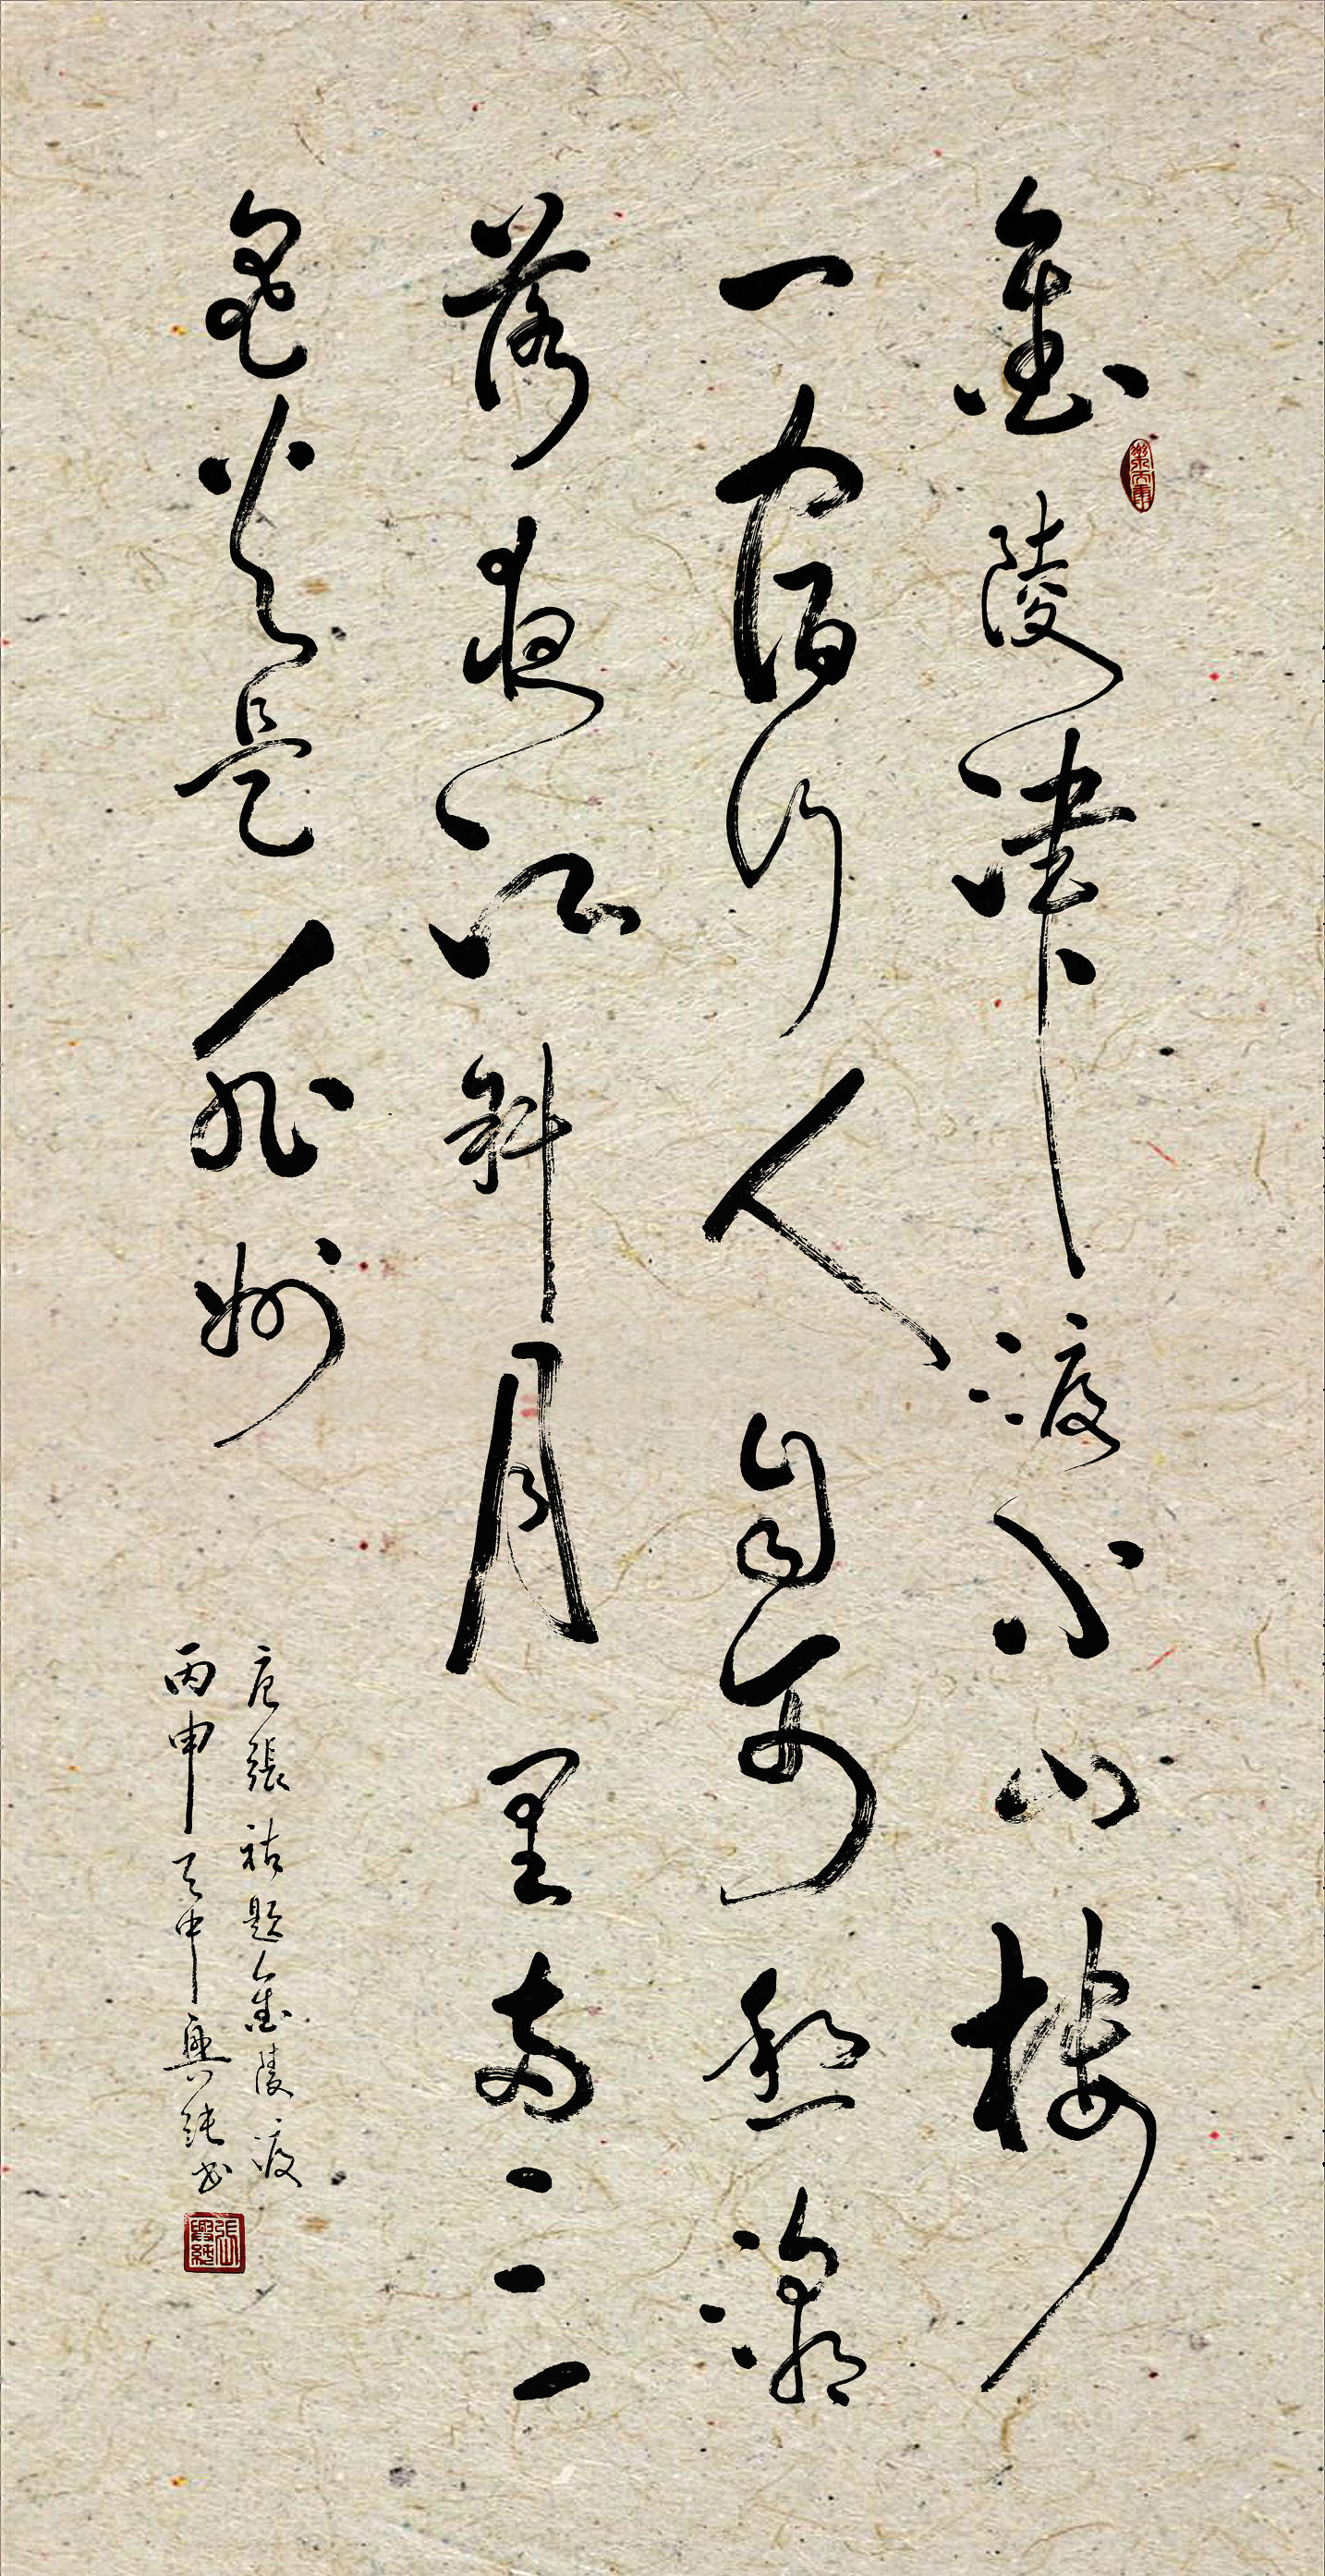 金陵津渡小山樓
一宿行人自可愁潮
落夜江斜月里兩三
星火是瓜州
唐張祜題金陵渡
丙申 中興純書